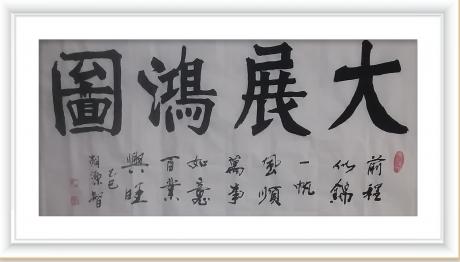 大展鴻圖
前程
似錦
一帆
風順
萬事
如意
百業
興旺
乙巳